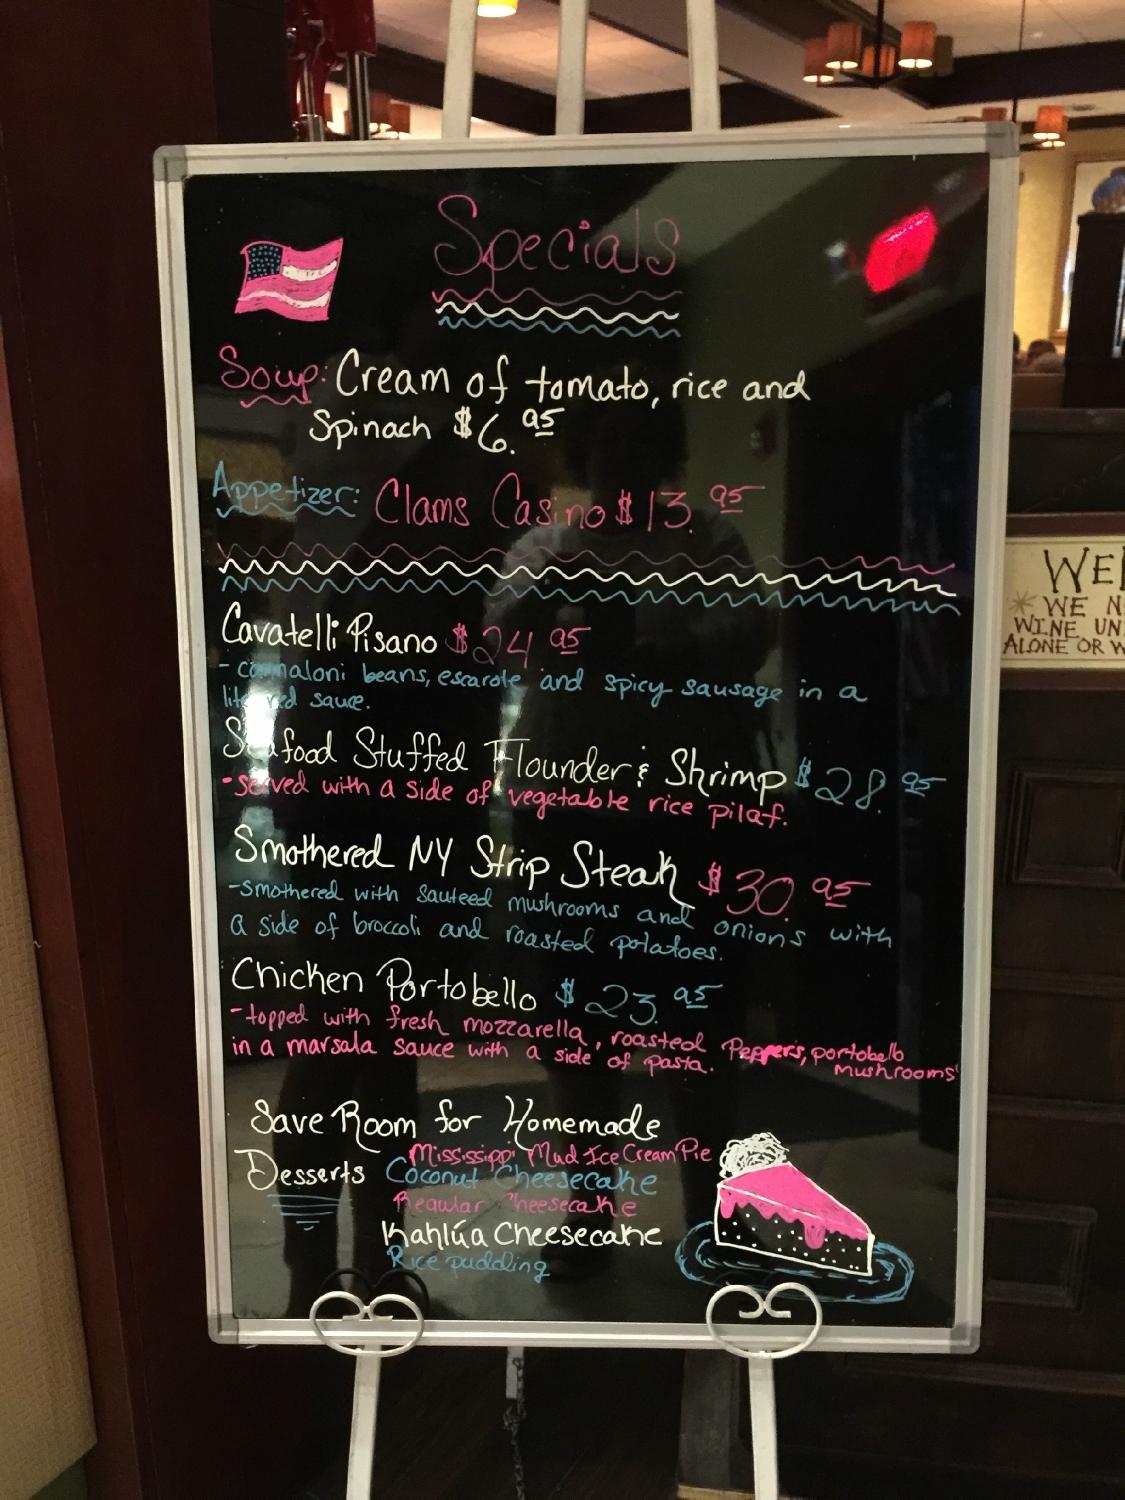 Specials
Soup: Cream of tomato, rice and
Spinach $6.95
Appetizer: Clams Casino $13.95
Cavatelli Pisano $24.95
- beans, escarole and spicy sausage in a
red sauce.
Seafood Stuffed Flounder & Shrimp $28.95
- served with a side of vegetable rice pilaf.
Smothered NY Strip Steak $30.95
- smothered with sauteed mushrooms and onions with
a side of broccoli and roasted potatoes.
Chicken Portobello $23.95
- topped with fresh mozzarella, roasted Peppers, portobello
mushrooms
in a marsala sauce with a side of pasta.
Save Room for Homemade
Desserts
Mississippi Mud Ice Cream Pie
Coconut Cheesecake
Regular Cheesecake
Kahlúa Cheesecake
Rice pudding
WE
WINE UN
ALONE OR W